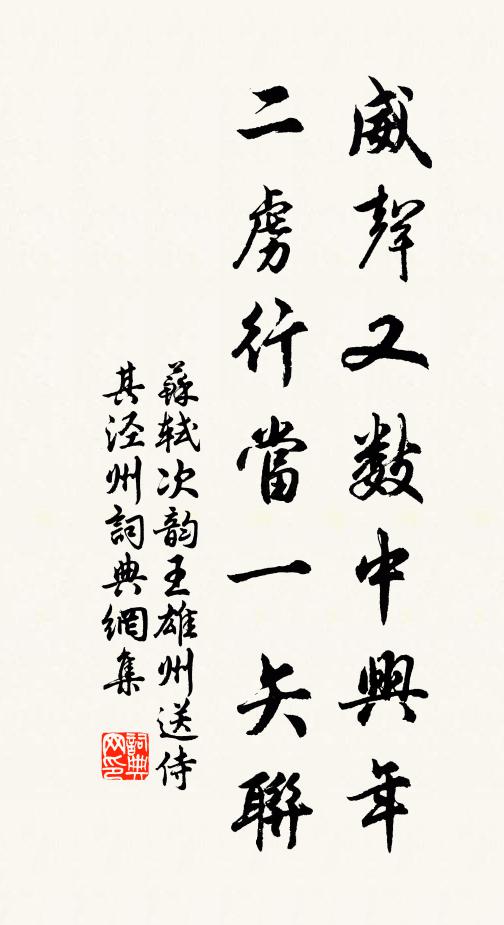 威聲又數中興年
二虜行當一矢聯
蘇軾次韵王雄州送侍
其涇州詞典網集
詞典
网印